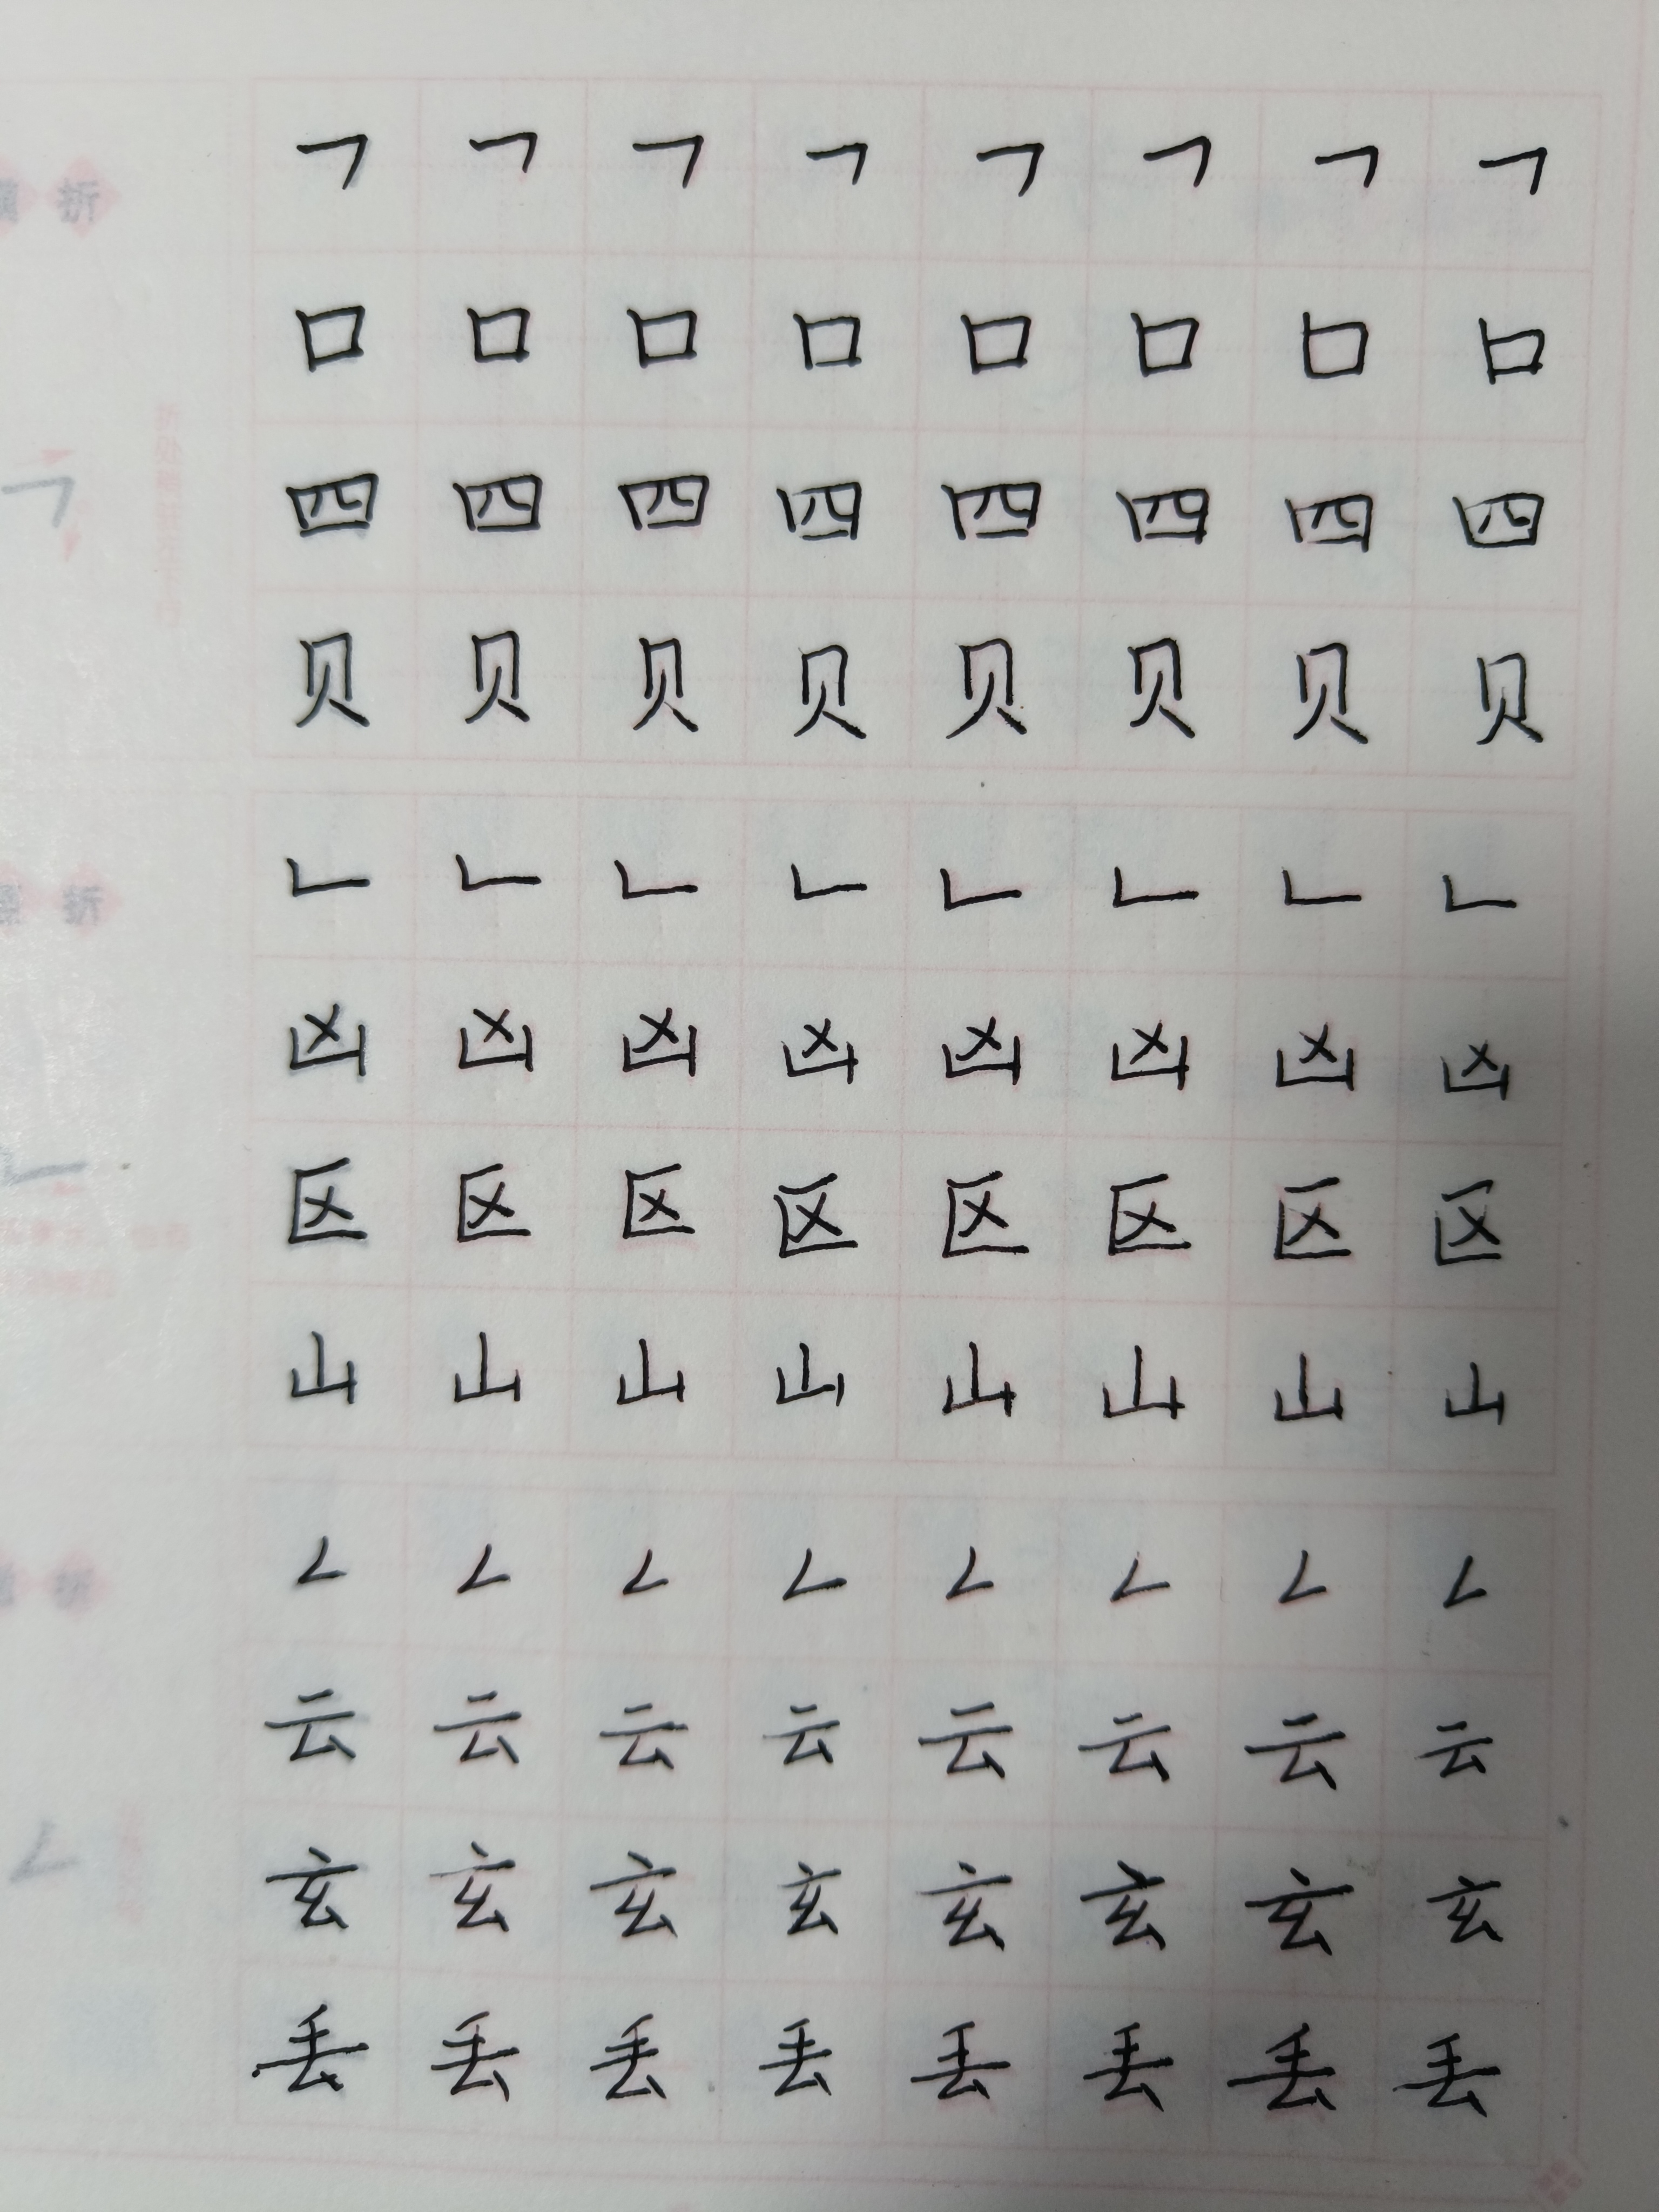 ㇕ ㇕ ㇕ ㇕ ㇕ ㇕ ㇕ ㇕
口 口 口 口 口 口 口 口
四 四 四 四 四 四 四 四
贝 贝 贝 贝 贝 贝 贝 贝
㇗ ㇗ ㇗ ㇗ ㇗ ㇗ ㇗ ㇗
凶 凶 凶 凶 凶 凶 凶 凶
区 区 区 区 区 区 区 区
山 山 山 山 山 山 山 山
㇜ ㇜ ㇜ ㇜ ㇜ ㇜ ㇜ ㇜
云 云 云 云 云 云 云 云
玄 玄 玄 玄 玄 玄 玄 玄
丢 丢 丢 丢 丢 丢 丢 丢